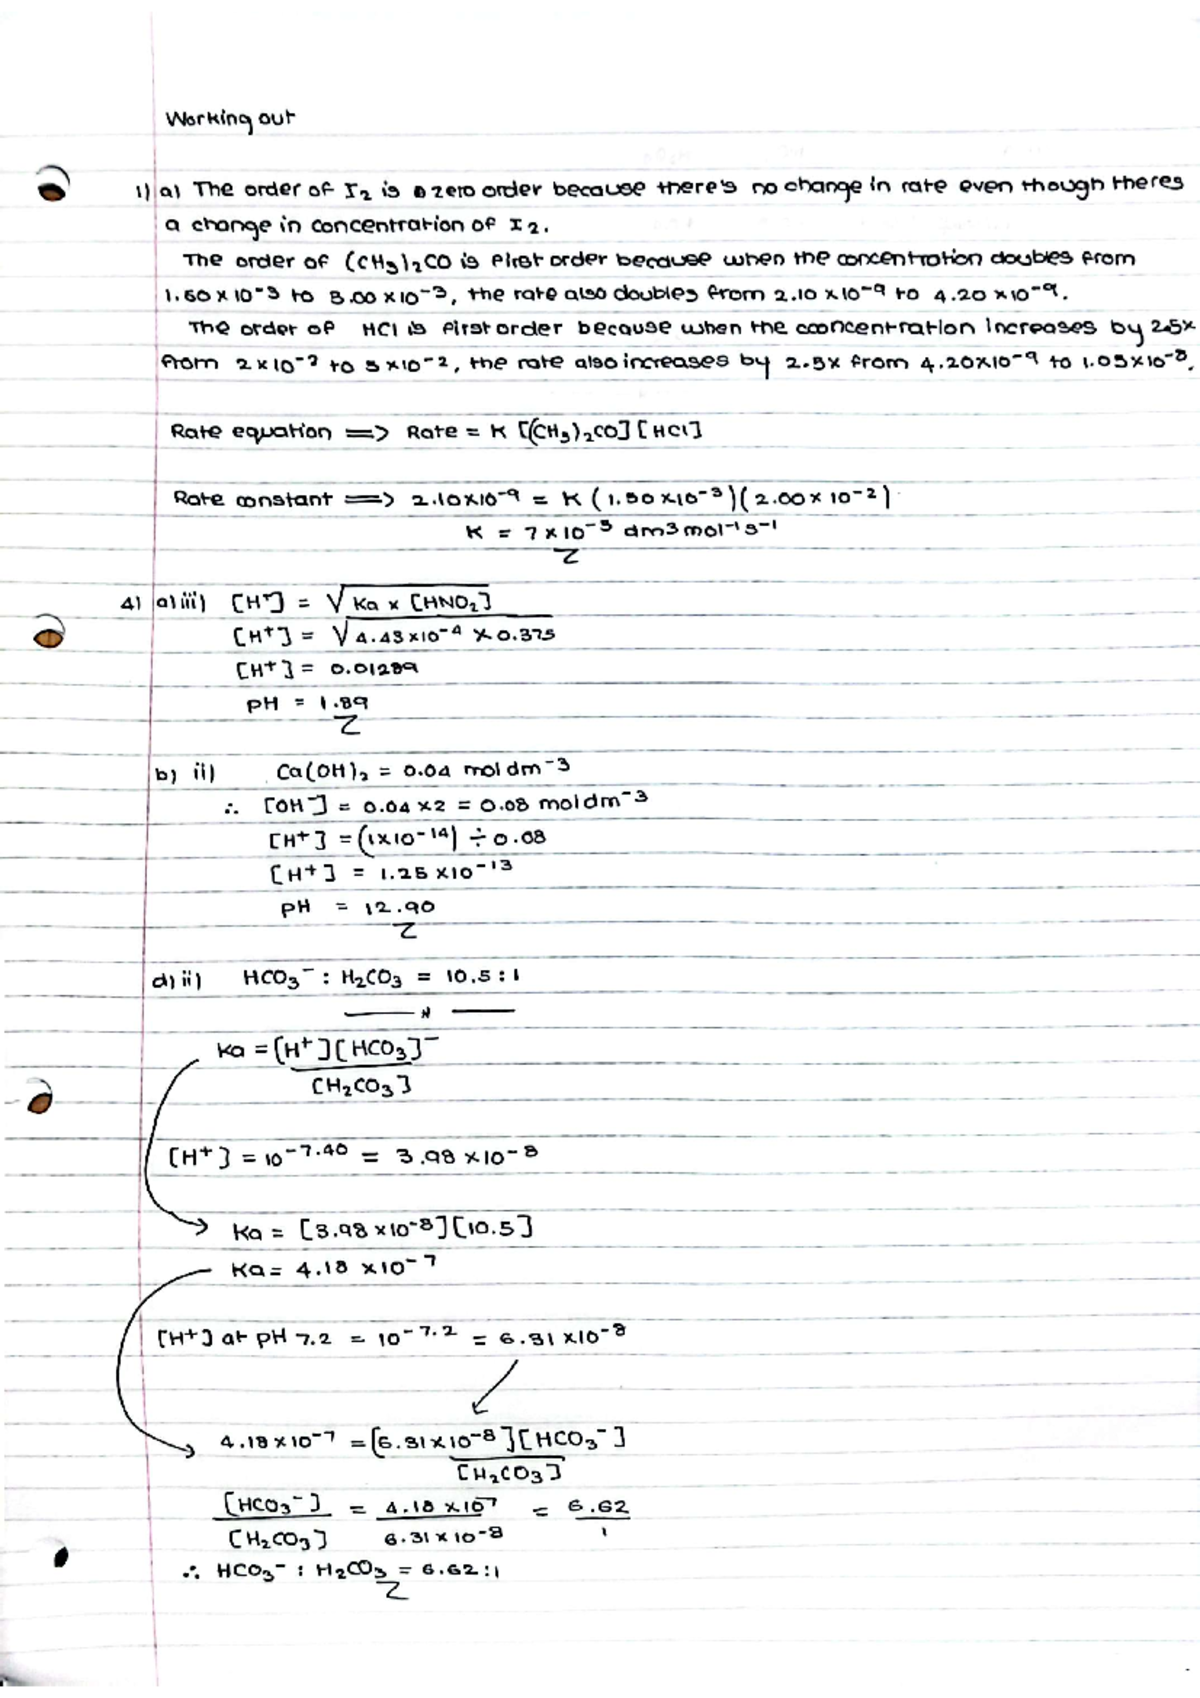 Working out
1) a) The order of I2 is a zero order because there's no change in rate even though theres
a change in concentration of I2.
The order of (CH3)2CO is first order because when the concentration doubles from
1.50 x 10-3 to 3.00 x 10-3, the rate also doubles from 2.10 x 10-9 to 4.20 x 10-9.
The order of HCl is first order because when the cooncentration increases by 2.5x
from 2 x 10-2 to 5 x 10-2, the rate also increases by 2.5x from 4.20x10-9 to 1.05x10-8.
Rate equation => Rate = K [(CH3)2CO] [HCl]
Rate constant => 2.10x10-9 = K (1.50 x10-3)(2.00 x 10-2)
K = 7 x 10-5 dm3 mol-1 s-1
4) a) iii) [H+] = √Ka x [HNO2]
[H+] = √4.43 x10-4 x 0.375
[H+] = 0.01289
pH = 1.89
b) ii) Ca(OH)2 = 0.04 mol dm-3
∴ [OH-] = 0.04 x2 = 0.08 moldm-3
[H+] = (1x10-14) ÷ 0.08
[H+] = 1.25 x10-13
pH = 12.90
d) ii) HCO3- : H2CO3 = 10.5 : 1
Ka = [H+][HCO3]-
[H2CO3]
[H+] = 10-7.40 = 3.98 x10-8
Ka = [3.98 x10-8][10.5]
Ka = 4.18 x10-7
[H+] at pH 7.2 = 10-7.2 = 6.31 x10-8
4.18 x10-7 = [6.31x10-8][HCO3-]
[H2CO3]
[HCO3-] = 4.18 x107 = 6.62
[H2CO3] 6.31 x 10-8 1
∴ HCO3- : H2CO3 = 6.62 : 1